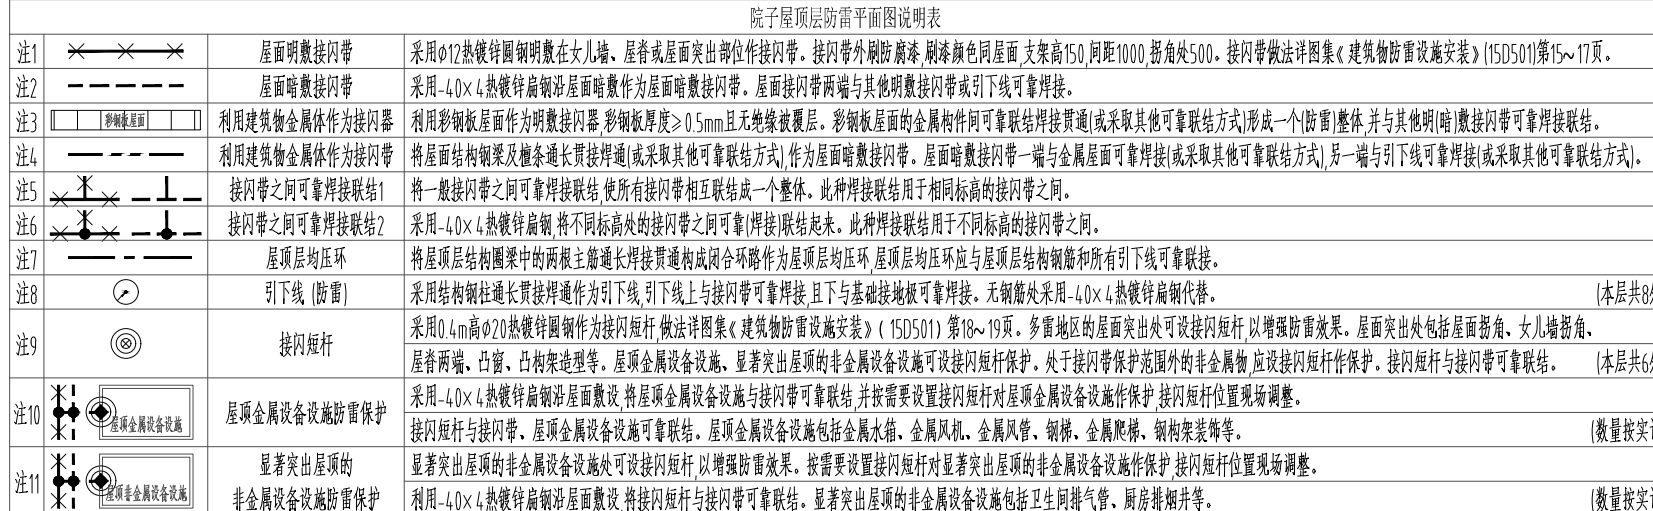 院子屋顶层防雷平面图说明表
注1 屋面明敷接闪带 采用φ12热镀锌圆钢明敷在女儿墙、屋脊或屋面突出部位作接闪带。接闪带外刷防腐漆,刷漆颜色同屋面,支架高150,间距1000,拐角处500。接闪带做法详图集《建筑物防雷设施安装》(15D501)第15~17页。
注2 屋面暗敷接闪带 采用-40×4热镀锌扁钢沿屋面暗敷作为屋面暗敷接闪带。屋面接闪带两端与其他明敷接闪带或引下线可靠焊接。
注3 彩钢板屋面 利用建筑物金属体作为接闪器 利用彩钢板屋面作为明敷接闪器,彩钢板厚度≥0.5mm且无绝缘被覆层。彩钢板屋面的金属构件间可靠联结焊接贯通(或采取其他可靠联结方式)形成一个(防雷)整体,并与其他明(暗)敷接闪带可靠焊接联结。
注4 利用建筑物金属体作为接闪带 将屋面结构钢梁及檀条通长贯接焊通(或采取其他可靠联结方式),作为屋面暗敷接闪带。屋面暗敷接闪带一端与金属屋面可靠焊接(或采取其他可靠联结方式),另一端与引下线可靠焊接(或采取其他可靠联结方式)。
注5 接闪带之间可靠焊接联结1 将一般接闪带之间可靠焊接联结,使所有接闪带相互联结成一个整体。此种焊接联结用于相同标高的接闪带之间。
注6 接闪带之间可靠焊接联结2 采用-40×4热镀锌扁钢,将不同标高处的接闪带之间可靠(焊接)联结起来。此种焊接联结用于不同标高的接闪带之间。
注7 屋顶层均压环 将屋顶层结构圈梁中的两根主筋通长焊接贯通构成闭合环路作为屋顶层均压环,屋顶层均压环应与屋顶层结构钢筋和所有引下线可靠联接。
注8 引下线 (防雷) 采用结构钢柱通长贯接焊通作为引下线,引下线上与接闪带可靠焊接,且下与基础接地极可靠焊接。无钢筋处采用-40×4热镀锌扁钢代替。 (本层共8
注9 接闪短杆 采用0.4m高φ20热镀锌圆钢作为接闪短杆,做法详图集《建筑物防雷设施安装》(15D501) 第18~19页。多雷地区的屋面突出处可设接闪短杆,以增强防雷效果。屋面突出处包括屋面拐角、女儿墙拐角、
屋脊两端、凸窗、凸构架造型等。屋顶金属设备设施、显著突出屋顶的非金属设备设施可设接闪短杆保护。处于接闪带保护范围外的非金属物,应设接闪短杆作保护。接闪短杆与接闪带可靠联结。 (本层共6
注10 屋顶金属设备设施 屋顶金属设备设施防雷保护 采用-40×4热镀锌扁钢沿屋面敷设,将屋顶金属设备设施与接闪带可靠联结,并按需要设置接闪短杆对屋顶金属设备设施作保护,接闪短杆位置现场调整。
接闪短杆与接闪带、屋顶金属设备设施可靠联结。屋顶金属设备设施包括金属水箱、金属风机、金属风管、钢梯、金属爬梯、钢构架装饰等。 (数量按实
注11 屋顶非金属设备设施 显著突出屋顶的 显著突出屋顶的非金属设备设施处可设接闪短杆,以增强防雷效果。按需要设置接闪短杆对显著突出屋顶的非金属设备设施作保护,接闪短杆位置现场调整。
非金属设备设施防雷保护 利用-40×4热镀锌扁钢沿屋面敷设,将接闪短杆与接闪带可靠联结。显著突出屋顶的非金属设备设施包括卫生间排气管、厨房排烟井等。 (数量按实